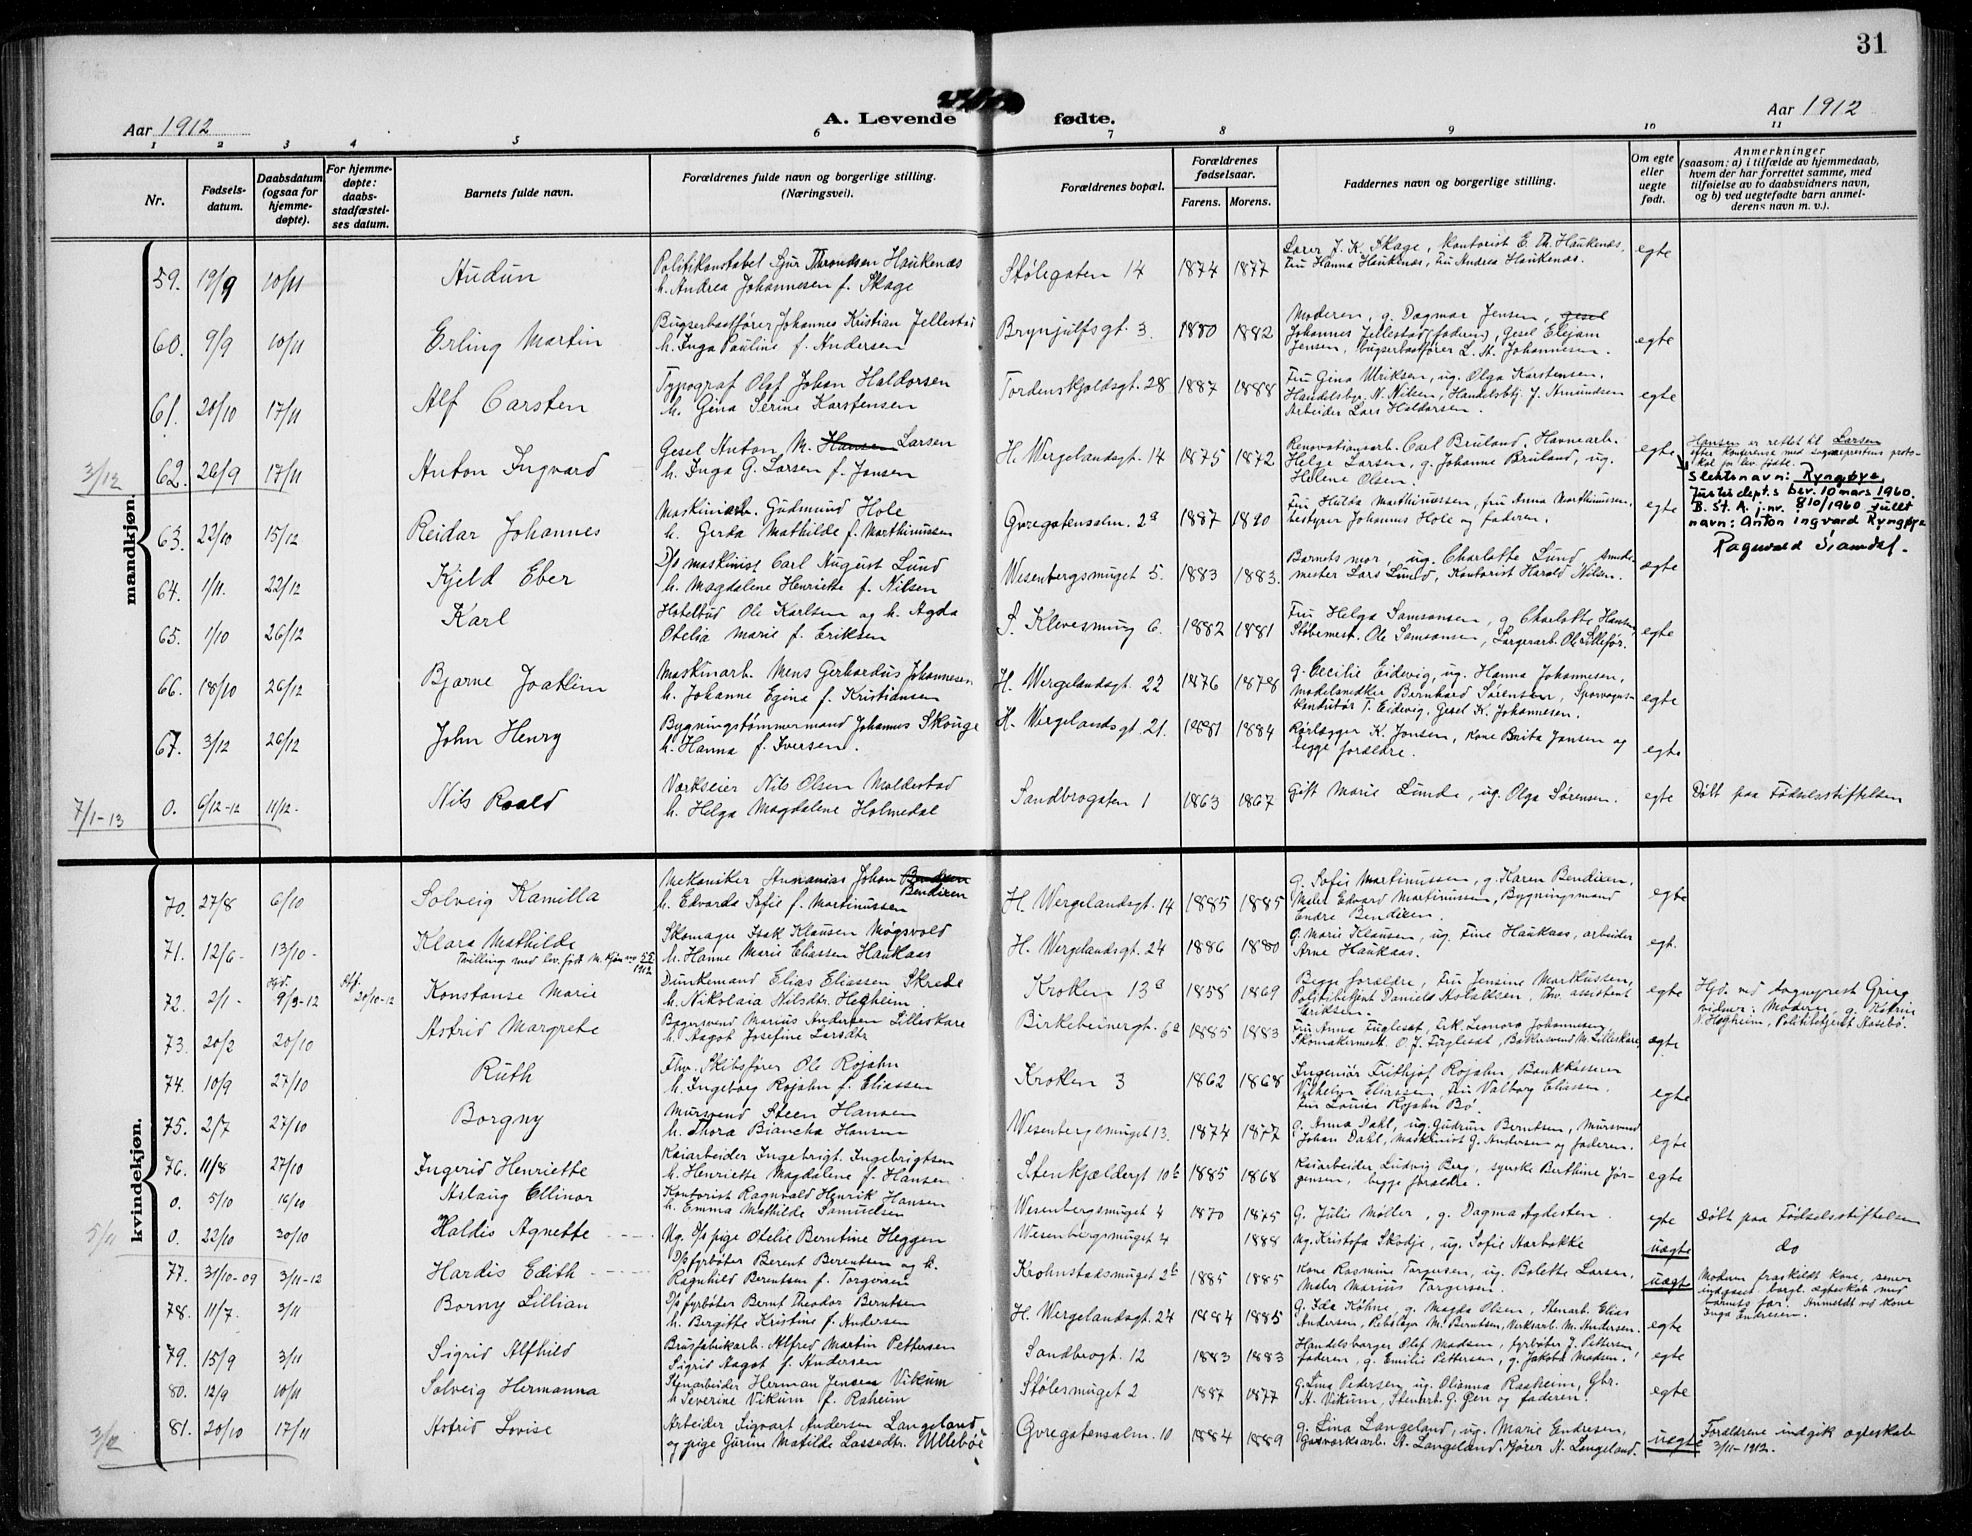 31
Aar 1912
A. Levende fødte.
Aar 1912
1 2 3 4 5 6 7 8 9 10 11
Nr.
Fødsels-
datum.
Daabsdatum
(ogsaa for
hjemme-
døpte).
For hjemme-
døpte:
daabs-
stadfæstel-
ses datum.
Barnets fulde navn.
Forældrenes fulde navn og borgerlige stilling.
(Næringsvei).
Forældrenes bopæl.
Forældrenes
fødselsaar.
Farens. Morens.
Faddernes navn og borgerlige stilling.
Om egte
eller
uegte
født.
Anmerkninger
(saasom: a) i tilfælde av hjemmedaab,
hvem der har forrettet samme, med
tilføielse av to daabsvidners navn,
og b) ved uegtefødte barn anmel-
derens navn m. v.).
mandkjøn.
59. 19/9 10/11 Audun
Politikonstabel Sjur Throndsen Haukenæs
h. Andrea Johannesen f. Skage
Stølegaten 14 1874 1877
Lærer J. K. Skage, Kontorist E. Th. Haukenæs.
Fru Hanna Haukenæs, Fru Andrea Haukenæs.
egte
60. 9/9 10/11 Erling Martin
Bugserbaatfører Johannes Kristian Jellestad
h. Inga Pauline f. Andersen
Brynjulfsgt. 3. 1880 1882
Moderen, g. Dagmar Jensen, Gesel
Johannes Jellestad (faderen), Gesel
Jensen, Bugserbaatfører L. A. Johannesen.
egte
61. 20/10 17/11 Alf Carsten
Typograf Olaf Johan Haldorsen
h. Gina Serine Karstensen
Tordenskjoldsgt. 28 1887 1888
Fru Gina Ulriksen, ug. Olga Karstensen.
Handelsbgr. N. Nilsen, Handelsbtj. J. Amundsen
Arbeider Lars Haldorsen.
egte
3/12
62. 26/9 17/11 Anton Ingvard
Gesel Anton M. Hansen Larsen
h. Inga G. Larsen f. Jansen
H. Wergelandsgt. 14 1875 1872
Renovationsarb. Carl Bruland, Havnearb.
Helge Larsen, g. Johanne Bruland, ug.
Helene Olsen.
egte
Hansen er rettet til Larsen
efter konferense med sogneprestens proto-
kol for lev. fødte.
Slektsnavn: Ryngøye
Justisdept.s bev. 10 mars 1960.
B. St. A. j.nr. 810/1960 fullt
navn: Anton Ingvard Ryngøye
63. 22/10 15/12 Reidar Johannes
Maskinarb. Gudmund Hole
h. Gerda Mathilde f. Marthinussen
Øvregatensalm. 2a 1887 1890
Fru Hulda Marthinussen, fru Anna Marthinussen,
bestyrer Johannes Hole og faderen.
egte
64. 1/11. 22/12 Kjeld Eber
D/s maskinist Carl August Lund
h. Magdalene Henriette f. Nilsen
Wesenbergsmuget 5. 1883 1883.
Barnets mor, ug. Charlotte Lund, Smede-
mester Lars Lund, Kontorist Harald Nilsen.
egte
65. 1/10 26/12 Karl
Hotelbud Ole Karlsen og h. Agda
Otelia Marie f. Eriksen
S. Klevesmug 6. 1882 1881
Fru Helga Samsonsen, g Charlotte Hansen,
Støbemest. Ole Samsonsen,
egte
66. 18/10 26/12 Bjarne Joakim
Maskinarb. Mens Gerhardus Johannesen
h. Johanne Egina f. Kristiansen
H. Wergelandsgt. 22 1876 1878
g. Cecilie Eidevig, ug. Hanna Johannesen,
Modelsnedker Bernhard Sørensen, Sporvogns-
konduktør T. Eidevig, Gesel K. Johannesen.
egte
67. 3/12 26/12 John Henry
Bygningstømmermand Johannes Skouge
h. Hanna f. Iversen.
H. Wergelandsgt. 21. 1881 1884
Rørlægger K. Jansen, Kone Brita Jansen og
begge forældre.
egte
7/1-13
0. 6/12-12 11/12. Nils Roald
Værkseier Nils Olsen Moldestad
h. Helga Magdalene Holmedal
Sandbrogaten 1 1863 1867
Gift Marie Lunde, ug. Olga Sørensen.
egte
Døbt paa Fødselsstiftelsen
kvindekjøn.
70. 27/8 6/10 Solveig Kamilla
Mekaniker Annanias Johan Bendixen
h. Edvarda Sofie f. Martinussen
H. Wergelandsgt. 14 1885 1885
g. Sofie Martinussen, g. Karen Bendixen,
Maler Edvard Martinussen, Bygningsmand
Endre Bendixen.
egte
71. 12/6- 13/10- Klara Mathilde
Tvilling med lev. født M. Kjøn no 55/1912
Skomager Isak Klausen Møgsvold
h. Hanne Marie Eliassen Haukaas
H. Wergelandsgt. 24 1886 1880
g. Marie Klausen, ug. Fine Haukaas, arbeider
Arne Haukaas.
egt.
72. 2/1- Hjd. 9/3-12 Stf. 20/10-12 Konstanse Marie
Dunkemand Elias Eliassen Skrede
h. Nikolaia Nilsdtr. Hegheim
Kroken 13a 1858 1869
Begge forældre, Fru Jensine Markussen,
Politibetjent Daniels Aslaksen, Thv. assistent
Eriksen.
egte
Hjd. ved sogneprest Grieg
vidner: Moderen, g. Katrin
N. Hegheim, Politibetjent Aasebø.
73. 20/2 20/10 Astrid Margrete
Bagersvend Marius Andersen Lilleskare
h. Aagot Josefine Larsdtr
Birkebeinergt. 6a 1885 1883
Fru Anna Fuglesat, Frk. Leonora Johannesen
Skomakermest. O. J. Fuglesat, Bakersvend M. Lilleskare,
egte
74. 10/9 27/10 Ruth
Fhv. Skibsfører Ole Rojahn
h. Ingeborg Rojahn f. Eliassen
Kroken 3 1862 1868
Ingeniør Frithjof Rojahn, Bankkasserer
Vilhelm Eliassen, Fru Valborg Eliassen.
Fru Louise Rojahn Bø.
egte
75. 2/7 27/10 Borgny
Mursvend Steen Hansen
h. Thora Biancha Hansen
Wesenbergsmuget 13. 1874 1877
g. Anna Dahl, ug. Gudrun Berntsen, Mursvend
Johan Dahl, Maskinist G. Andersen og faderen.
egte
76. 11/8 27/10 Ingerid Henriette
Kaiarbeider Ingebrigt Ingebrigtsen
h. Henriette Magdalene f. Hansen
Stenkjeldergt 10b 1885 1868
Kaiarbeider Ludvig Berg, syerske Berthine Jør-
gensen, begge forældre.
egte
0. 5/10 16/10 Aslaug Ellinor
Kontorist Ragnvald Henrik Hansen
h. Emma Mathilde Samuelsen
Wesenbergsmuget 4 1870 1875
g. Julie Møller, g. Dagma Agdesten.
egte
Døbt paa Fødselsstiftelsen
5/11
0. 22/10 30/10 Haldis Agnette
Ug. D/s pige Otelie Berntine Heggen
Wesenbergsmuget 4 1888
ug. Kristofa Skodje, ug. Sofie Aarbakke
uegte
do
77. 31/10-09 3/11-12 Hardis Edith
D/s fyrbøter Berent Berentsen og h.
Ragnhild Berentsen f. Torgersen
Krohnstadsmuget 2b 1885 1885
Kone Rasmine Torgersen, ug. Bolette Larsen,
Maler Marius Torgersen.
uegte
Modern fraskildt kone, senere
indgaaet borgl. ægteskab med
barnets far. Anmeldt ved kone
Inga Endresen.
78. 11/7. 3/11 Borny Lillian
D/s fyrbøter Bernt Theodor Berntsen
h. Bergitte Kristine f. Andersen
H. Wergelandsgt. 24 1884 1885
g. Ida Køhne, g. Magda Olsen, Stenarb. Elias
Andersen, M. Berntsen, Verkarb. M. Andersen.
egte
79. 15/9 3/11 Sigrid Alfhild
Brusfabrikarb. Alfred Martin Pettersen
Sigrid Aagot f. Andersen
Sandbrogt. 12 1883 1883
Handelsborger Olaf Madsen, fyrbøter J. Pettersen,
faderen, g. Emilie Pettersen, g. Jakobe Madsen.
egte
80. 12/9 10/11 Solveig Hermanna
Stenarbeider Herman Jensen Vikum
h. Severine Vikum f. Raheim
Stølesmuget 2 1887 1877
g. Lina Pedersen, ug. Olianna Raaheim, Gbr.
A. Vikum, Stenarb. G. Øen og faderen.
egte
3/12
81. 20/10 17/11 Astrid Lovise
Arbeider Sigvart Andersen Langeland
og pige Gurine Matilde Lassedtr. Ullebøe
Øvregatensalm. 10 1884 1889
g. Lina Langeland, ug. Marie Endresen,
Gasværksarb. A. Langeland, Kjører N. Langeland.
uegte
Forældrene indgik ægteskab
3/11-1912.